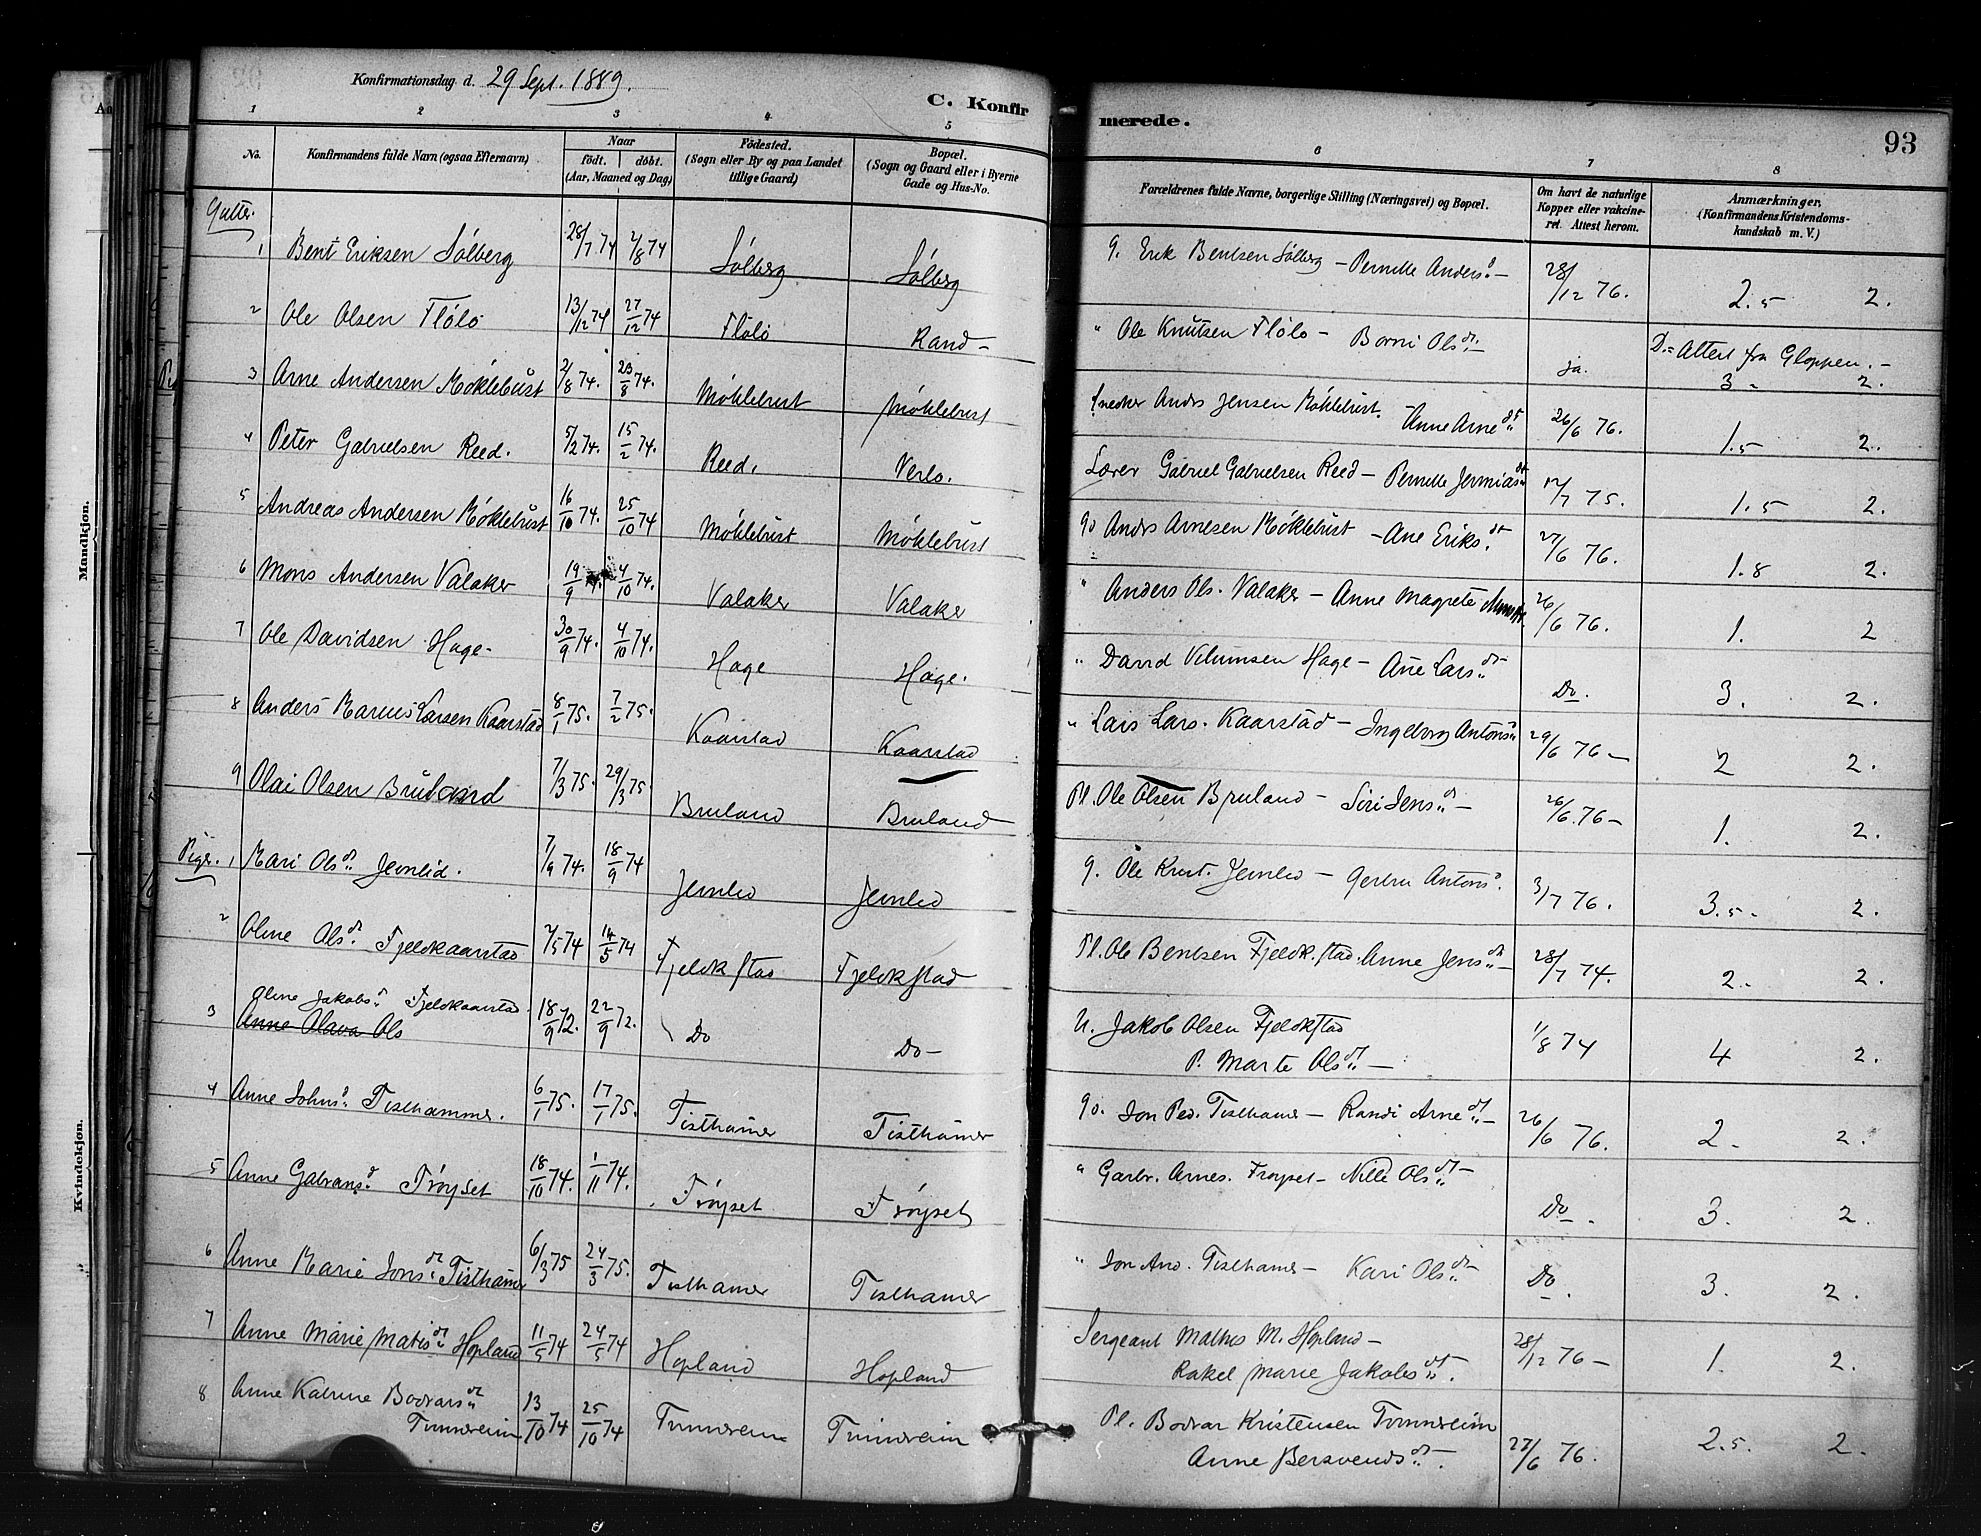 Konfirmationsdag d. 29 Sept. 1889.
C. Konfir
merede.
93
1 2 3 4 5 6 7 8
No.
Konfirmandens fulde Navn (ogsaa Efternavn)
Naar
födt. döbt.
(Aar, Maaned og Dag)
Födested.
(Sogn eller By og paa Landet
tillige Gaard)
Bopæl.
(Sogn og Gaard eller i Byerne
Gade og Hus-No.
Forældrenes fulde Navne, borgerlige Stilling (Næringsvei) og Bopæl.
Om havt de naturlige
Kopper eller vakcine-
ret. Attest herom.
Anmærkninger,
(Konfirmandens Kristendoms-
kundskab m. V.)
Mandkjøn.
Kvindekjøn.
Gutter.
1 Bent Eriksen Sølberg 28/7 74 2/8 74 Sølberg Sølberg G. Erik Bentsen Sølberg – Pernille Andersd – 28/12 76. 2.5 2.
2 Ole Olsen Flølo 13/12 74 27/12 74 Flølo Rand – " Ole Knutsen Flølo – Borni Olsdt. – ja. D.= Attest fra Gloppen. – 3 – 2.
3 Arne Andersen Møklebust 2/8 74. 23/8 74. Møklebust Møklebust Snedker Andrs Jensen Møklebust. – Anne Arnedt 26/6 76. 1.5 2.
4 Peter Gabrielsen Reed. 5/2 74. 15/2 74. Reed, Verlo. Lærer Gabriel Gabrielsen Reed – Pernille Jermiasdt 12/7 75. 1.5 2.
5 Andreas Andersen Møklebust 16/10 74. 25/10 74 Møklebust Møklebust Andrs Arnesen Møklebust – Ane Eriksdt 27/6 76. 1.8 2.
6 Mons Andersen Valaker 19/9 74. 4/10 74. Valaker Valaker " Anders Ols. Valaker – Anne Magrete 26/6 76. 1. 2
7 Ole Davidsen Hage – 30/9 74. 4/10 74. Hage Hage. " David Vilumsen Hage – Ane Larsdt – Do. 3. 2.
8 Anders Marius Larsen Kaarstad 8/1 75. 7/2 75. Kaarstad Kaarstad " Lars Lars. Kaarstad – Ingeborg Antonsd 29/6 76 – 2 2.
9 Olai Olsen Bruland 7/3 75. 29/3 75 Bruland Bruland Pl. Ole Olsen Bruland – Siri Jensdt – 26/6. 76 – 1. 2.
Piger.
1 Mari Olsdt Jemlid. 7/9 74. 18/9 74 Jemlid Jemlid G. Ole Krist. Jemlid – Gertru Antonsd. 3/7 76. 3.5 – 2.
2 Oline Olsdt Fjeldkaarstad 2/5 74 14/5 74 Fjeldkstad Fjeldkstad Pl. Ole Bentsen Fjeldk.stad. Anne Jensdt – 28/7 74. 2 – 2.
3 Oline Jakobsd Fjeldkaarstad.
Anne Olava Ols 18/9 72. 22/9 72. Do Do – U. Jakob Olsen Fjeldkstad
P. Marte Olsdt – 1/8 74 4 2.
4 Anne Johnsd Tisthammer. 6/1 75. 17/1 75. Tisthamer Tisthamer Jon Ped. Tisthamer – Randi Arnedt – 26/6 76. 2 – 2.
5 Anne Gabransd Frøyset 18/10 74. 1/11 74. Frøyset Frøyset " Garbr. Arnes. Frøyset – Nille Olsdt – Do. 3. 2.
6 Anne Marie Jonsdt Tisthamer 6/3 75 24/3 75. Tisthamer Tisthamer " Jon And. Tisthamer – Kari Olsdt – Do. 3. 2.
7 Anne Marie Matisdt Hopland 11/5 74 24/5 74 Hopland Hopland Sergeant Mathis M. Hopland –
Rakel Marie Jakobsdt. 28/12 76 – 1. 2.
8 Anne Katrine Bodvarsdt
Tunnreim 13/10 74 25/10 74 Tunnreim Tunnreim Pl. Bodvar Kristensen Tunnreim
Anne Bersvendsdt –. 27/6 76. 2.5. 2.